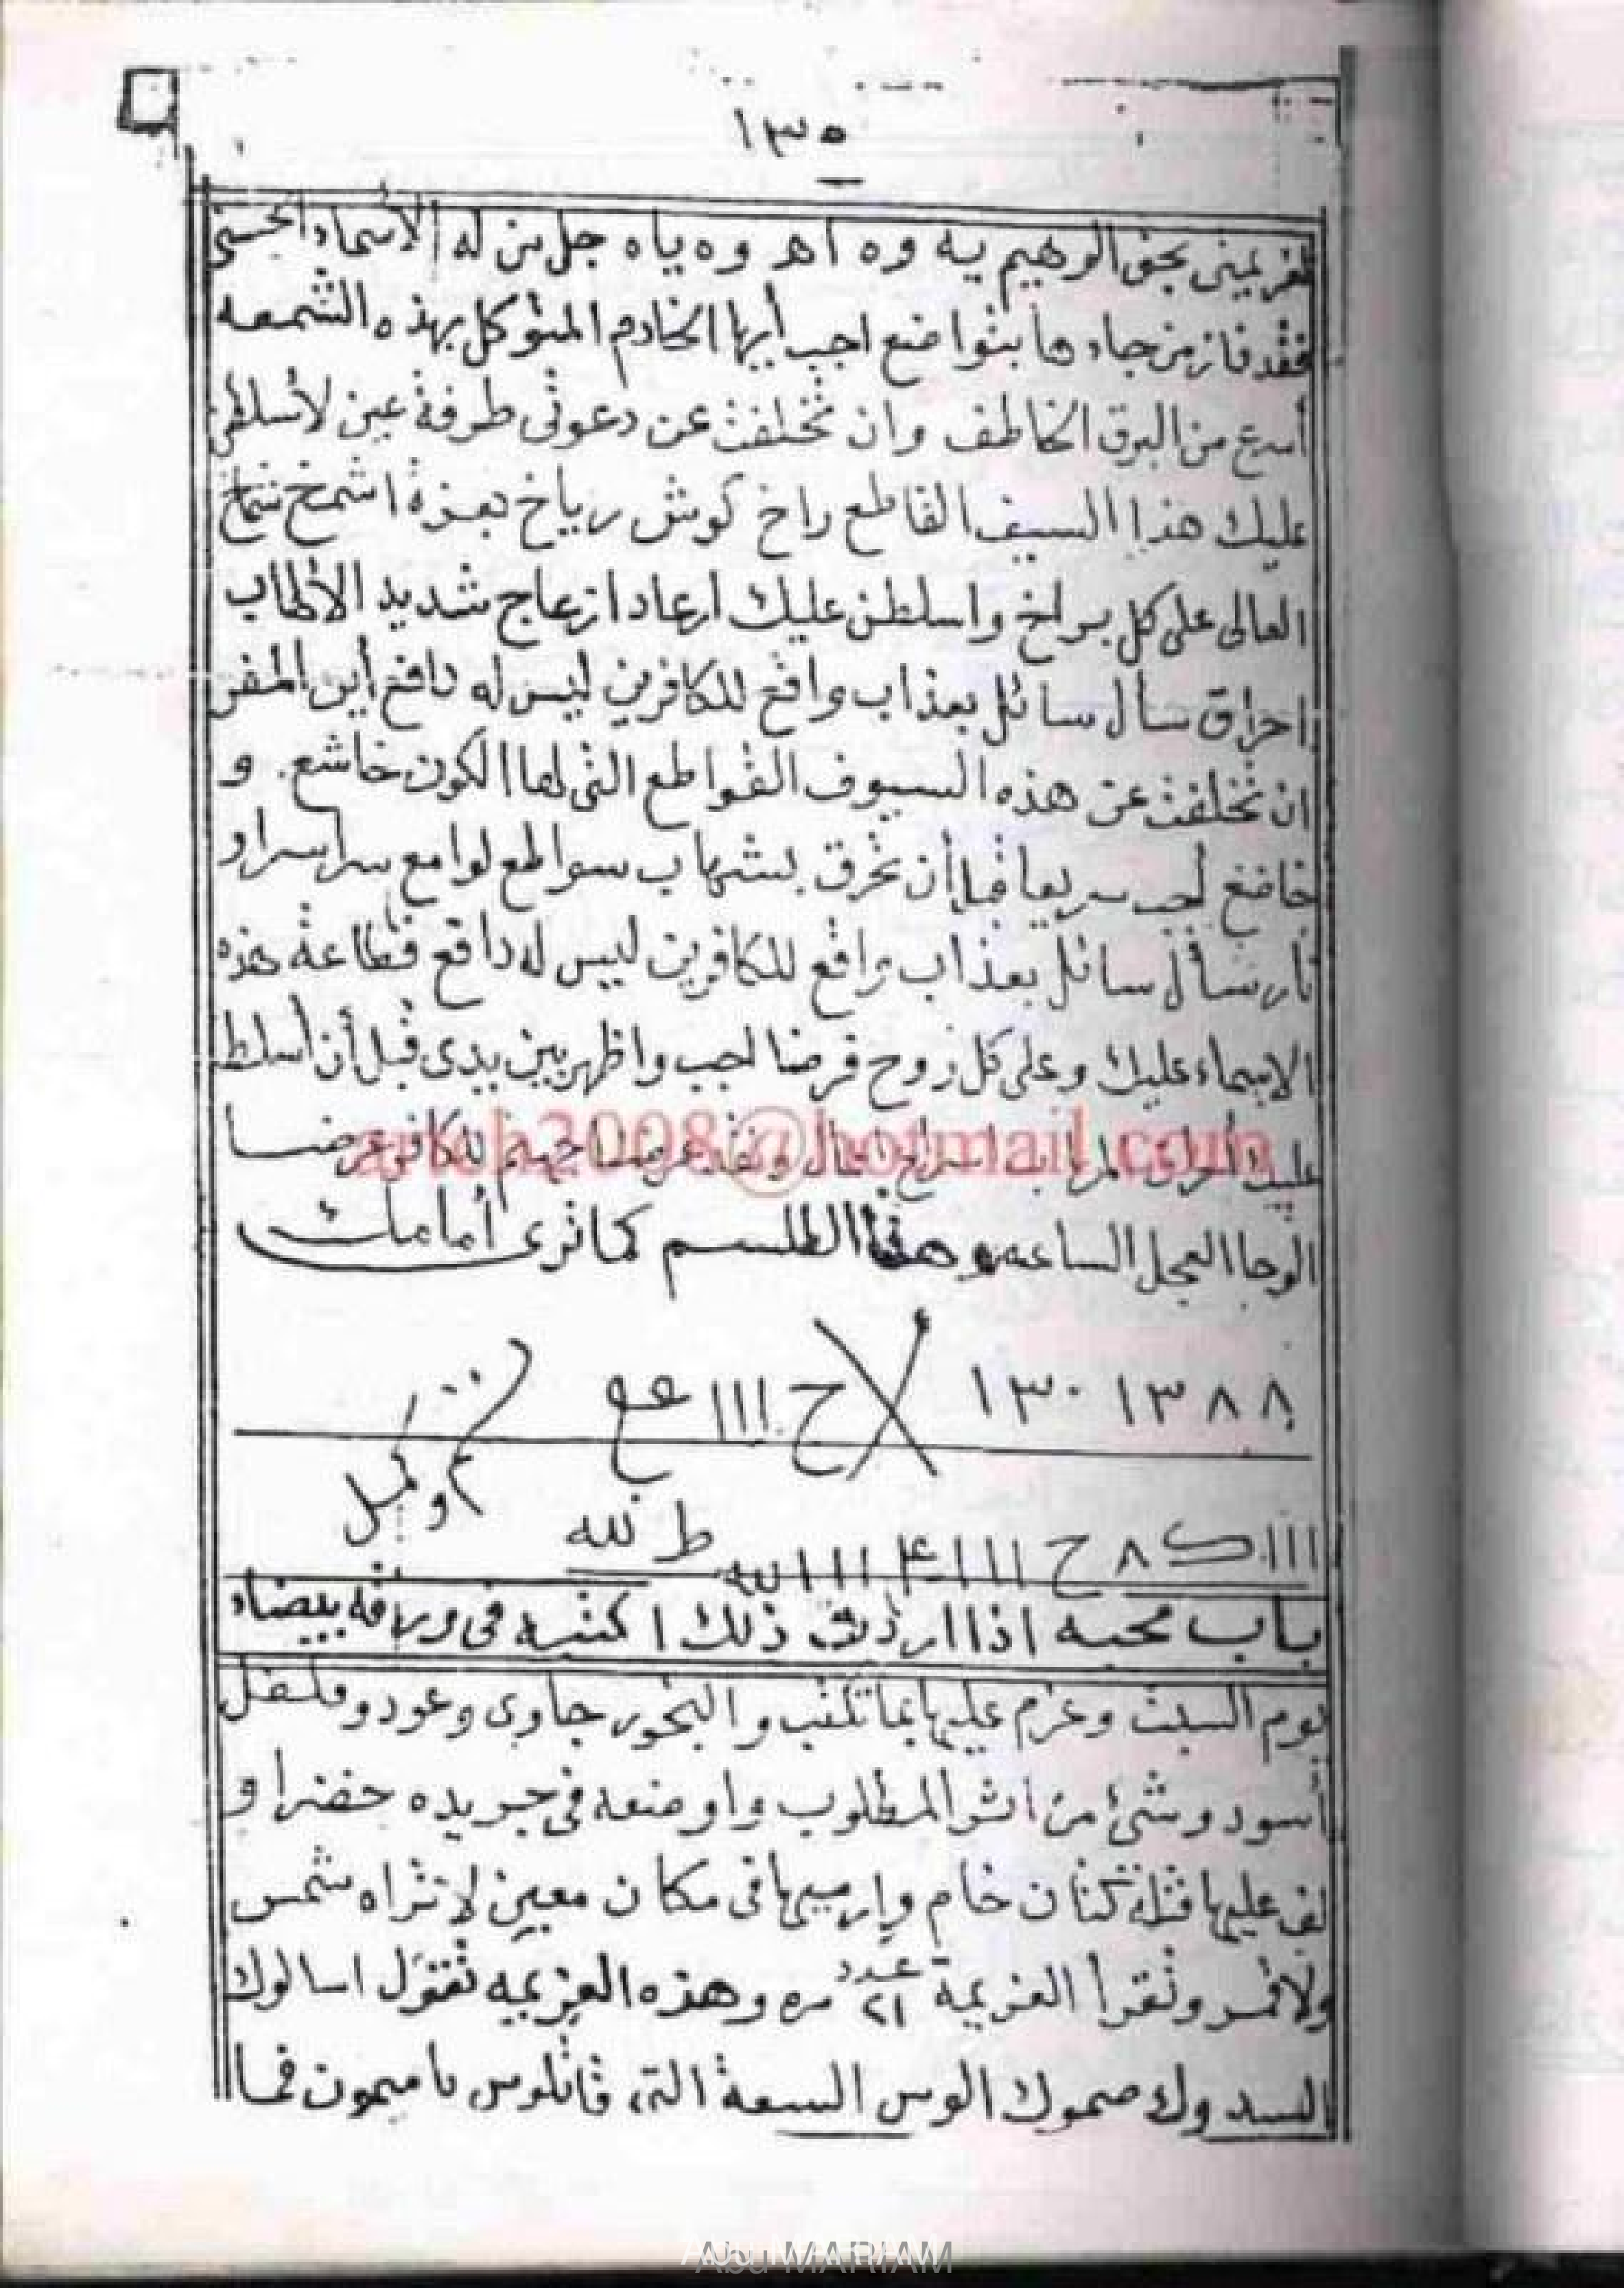 ١٣٥
لعزيمتى بحق الوهيم يه وه اهـ وه ياه جل من له الأسماء الحسنى
فقد فاز من جاء ها بتواضع اجب أيها الخادم المتوكل بهذه الشمعه
أسرع من البرق الخاطف وان تخلفت عن دعوتى طرفة عين لأسلطن
عليك هذا السيف القاطع راخ كوش رياخ بعزة اشمخ شماخ
العالى على كل براخ واسلطن عليك ارعاد ازعاج شديد الألهاب
احراق سأل سائل بعذاب واقع للكافرين ليس له دافع أين المفر
ان تخلفت عن هذه السيوف القواطع التى لها الكون خاشع و
خاضع أجب سريعا قبل أن تحرق بشهاب سواطع لوامع سراسراو
نار سأل سائل بعذاب واقع للكافرين ليس له دافع قطاعة هذه
الاسماء عليك وعلى كل روح فرضا اجب واظهر بين يدى قبل أن اسلط
عليك عرضا
الوحا العجل الساعه وهذا الطلسم كما ترى أمامك
١٣٨٨ ١٣٠ ح ااا عع
ااا ك ٨ ح ااا ااا ط لله
باب محبه اذا اردت ذلك اكتبه فى ورقه بيضاء
يوم السبت وعزم عليها بما تكتب والبخور جاوى وعود وفلفل
أسود وشئ من اثر المطلوب واوضعه فى جريده خضرا و
لف عليها فتلة كتان خام وارميها فى مكان معين لا تراه شمس
ولا قمر وتقرأ العزيمة عدد ٢١ مره وهذه العزيمه تقول اسالوك
السدوك صموك الوس السعة التى قانلوس يا ميمون فما
artch2008@hotmail.com
Abu MARIAM